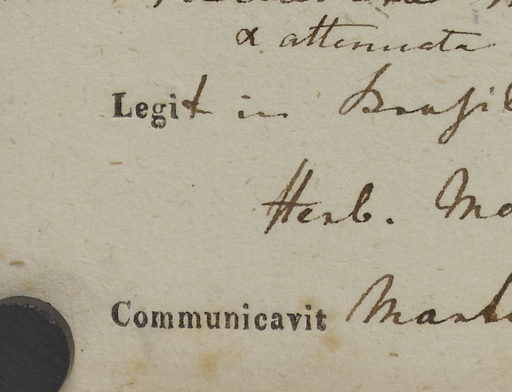 α attenuata
Legit in Brasil
Herb. Ma
Communicavit Marti